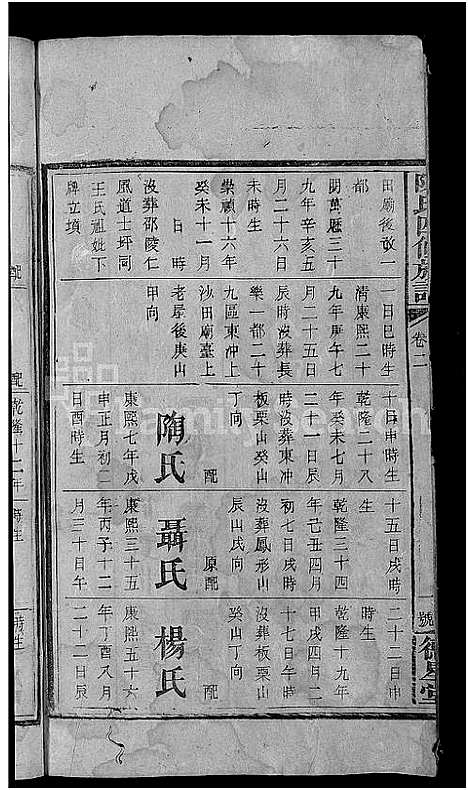 陳氏四修族譜
卷二
號
德星堂
田廟後敬一
都
明萬曆三十
九年辛亥五
月二十六日
未時生
崇禎十六年
癸未十一月
日時
沒葬邵陵仁
風道士坪同
王氏祖妣下
碑立項
一日巳時生
清康熙二十
九年庚午七
月二十五日
辰時沒葬長
樂一都二十
九區東冲上
沙田廟臺上
老屋後庚山
甲向
十日申時生
乾隆二十八
年癸未七月
二十一日辰
時沒葬東冲
板栗山癸山
丁向
配
陶氏
康熙七年戊
申正月初二
日酉時生
十五日戌時
生
乾隆三十四
年己丑四月
初七日戌時
沒葬鳳形山
辰山戌向
原配
聶氏
康熙三十五
年丙子十二
月三十日午
二十二日申
時生
乾隆十九年
甲戌四月二
十七日戌時
沒葬板栗山
癸山丁向
配
楊氏
康熙五十六
年丁酉八月
二十二日辰
配
配
乾隆十二年
時生